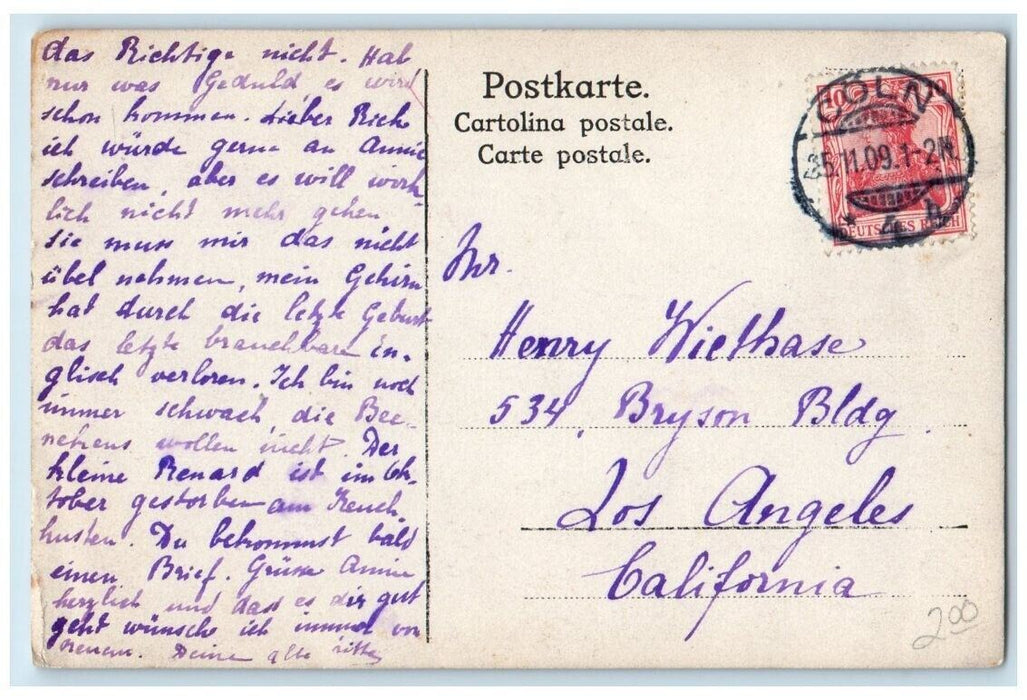 das Richtige nicht. Hab
nur was Geduld es wird
schon kommen. Lieber
ich würde gerne an Annie
schreiben, aber es will wirk
lich nicht mehr gehen
sie muss mir das nicht
übel nehmen, mein Gehirn
hat durch die letzte Geburt
das letzte brauchbare en-
glisch verloren. Ich bin noch
immer schwach, die
wollen nicht. Der
kleine Renard ist im Ok-
tober gestorben am Keuch
husten. Du bekommst bald
einen Brief. Grüsse Annie
herzlich und dass es dir gut
geht wünsche ich immer von
neuem. Deine alte
Postkarte.
Cartolina postale.
Carte postale.
CÖLN
11.09.1-2N.
* 4 h
10 10
DEUTSCHES REICH
Mr.
Henry Wiethase
534, Bryson Bldg.
Los Angeles
California
2.00